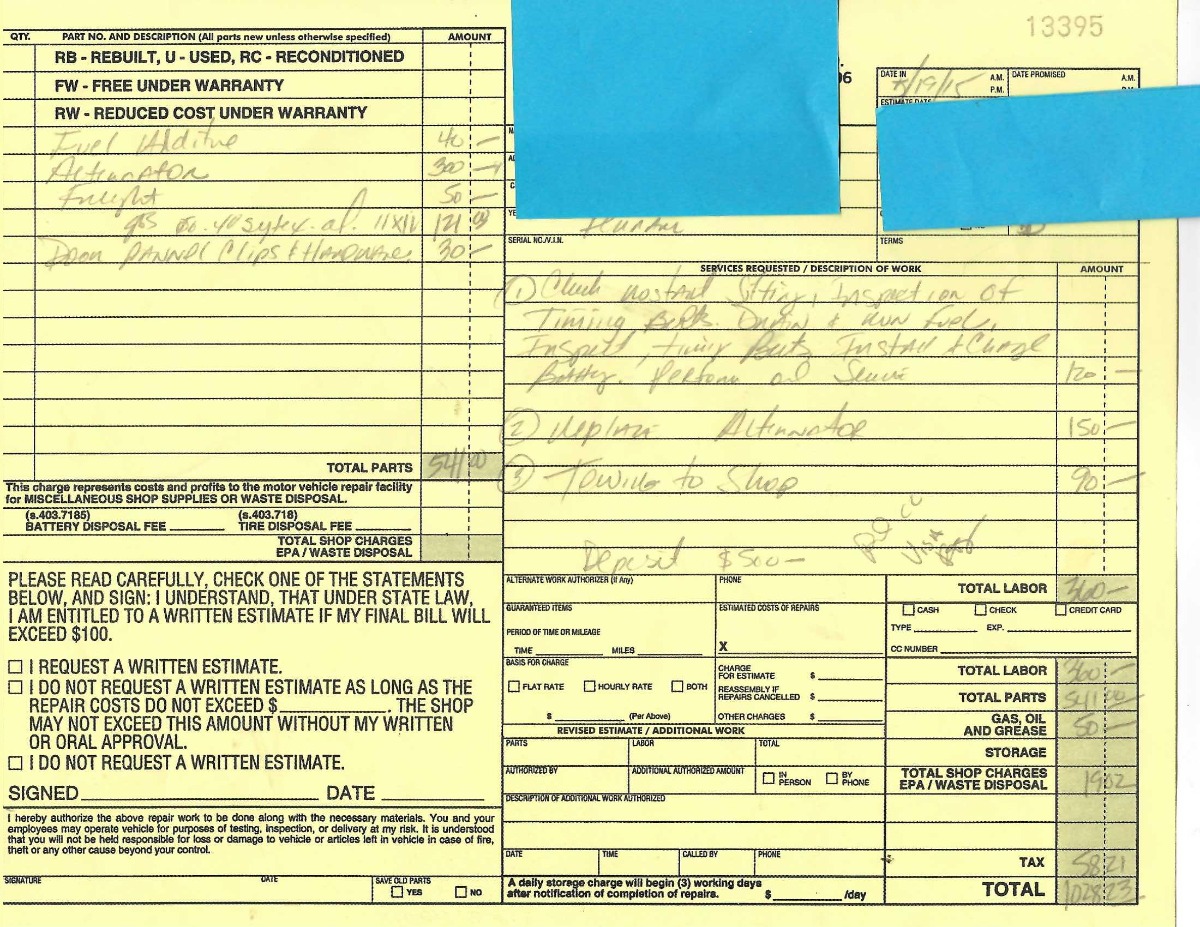 13395
QTY. PART NO. AND DESCRIPTION (All parts new unless otherwise specified) AMOUNT
RB - REBUILT, U - USED, RC - RECONDITIONED
FW - FREE UNDER WARRANTY
RW - REDUCED COST UNDER WARRANTY
Fuel Additive 40 —
Alternator 300 —
Freight 50 —
121
Door Clips & Hardware 30 —
TOTAL PARTS 541 00
This charge represents costs and profits to the motor vehicle repair facility
for MISCELLANEOUS SHOP SUPPLIES OR WASTE DISPOSAL.
(s.403.7185) (s.403.718)
BATTERY DISPOSAL FEE TIRE DISPOSAL FEE
TOTAL SHOP CHARGES
EPA / WASTE DISPOSAL
PLEASE READ CAREFULLY, CHECK ONE OF THE STATEMENTS
BELOW, AND SIGN: I UNDERSTAND, THAT UNDER STATE LAW,
I AM ENTITLED TO A WRITTEN ESTIMATE IF MY FINAL BILL WILL
EXCEED $100.
I REQUEST A WRITTEN ESTIMATE.
I DO NOT REQUEST A WRITTEN ESTIMATE AS LONG AS THE
REPAIR COSTS DO NOT EXCEED $ . THE SHOP
MAY NOT EXCEED THIS AMOUNT WITHOUT MY WRITTEN
OR ORAL APPROVAL.
I DO NOT REQUEST A WRITTEN ESTIMATE.
SIGNED DATE
I hereby authorize the above repair work to be done along with the necessary materials. You and your
employees may operate vehicle for purposes of testing, inspection, or delivery at my risk. It is understood
that you will not be held responsible for loss or damage to vehicle or articles left in vehicle in case of fire,
theft or any other cause beyond your control.
SIGNATURE DATE SAVE OLD PARTS
YES NO
06
DATE IN /19/15 A.M. P.M. DATE PROMISED A.M.
ESTIMATE DATE
SERIAL NO./V.I.N. TERMS
SERVICES REQUESTED / DESCRIPTION OF WORK AMOUNT
(1) Check Sitting, Inspection of
Timing Belts. Drain & Fuel,
Inspect, Timing Belts, Install & Charge
Battery. Perform oil Service 120 —
(2) Replace Alternator 150 —
(3) Towing to Shop 90 —
Deposit $500 —
Visa
ALTERNATE WORK AUTHORIZER (If Any) PHONE TOTAL LABOR 360 —
GUARANTEED ITEMS ESTIMATED COSTS OF REPAIRS CASH CHECK CREDIT CARD
PERIOD OF TIME OR MILEAGE TYPE EXP.
TIME MILES X CC NUMBER
BASIS FOR CHARGE CHARGE FOR ESTIMATE $ TOTAL LABOR 360 —
FLAT RATE HOURLY RATE BOTH REASSEMBLY IF REPAIRS CANCELLED $ TOTAL PARTS 541 00
$ (Per Above) OTHER CHARGES $ GAS, OIL AND GREASE 50 —
REVISED ESTIMATE / ADDITIONAL WORK
PARTS LABOR TOTAL STORAGE
AUTHORIZED BY ADDITIONAL AUTHORIZED AMOUNT IN PERSON BY PHONE TOTAL SHOP CHARGES EPA / WASTE DISPOSAL 19 02
DESCRIPTION OF ADDITIONAL WORK AUTHORIZED
DATE TIME CALLED BY PHONE TAX 58 21
A daily storage charge will begin (3) working days
after notification of completion of repairs. $ /day TOTAL 1028 23